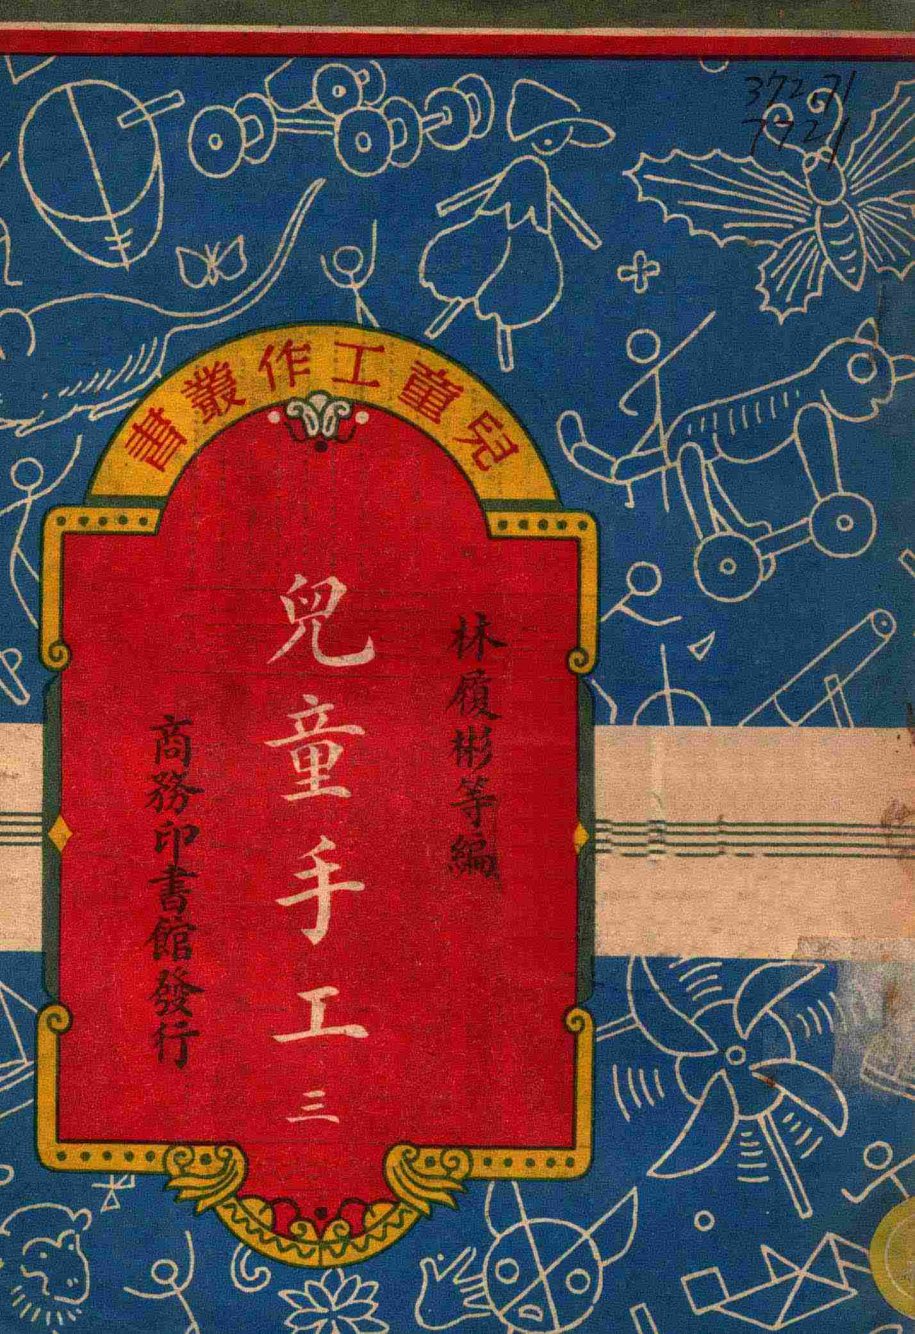 372.71
7721
兒童工作叢書
林履彬等編
兒童手工
三
商務印書館發行